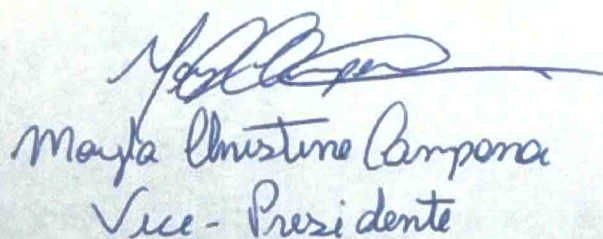 Mayla Christine Campona
Vice-Presidente